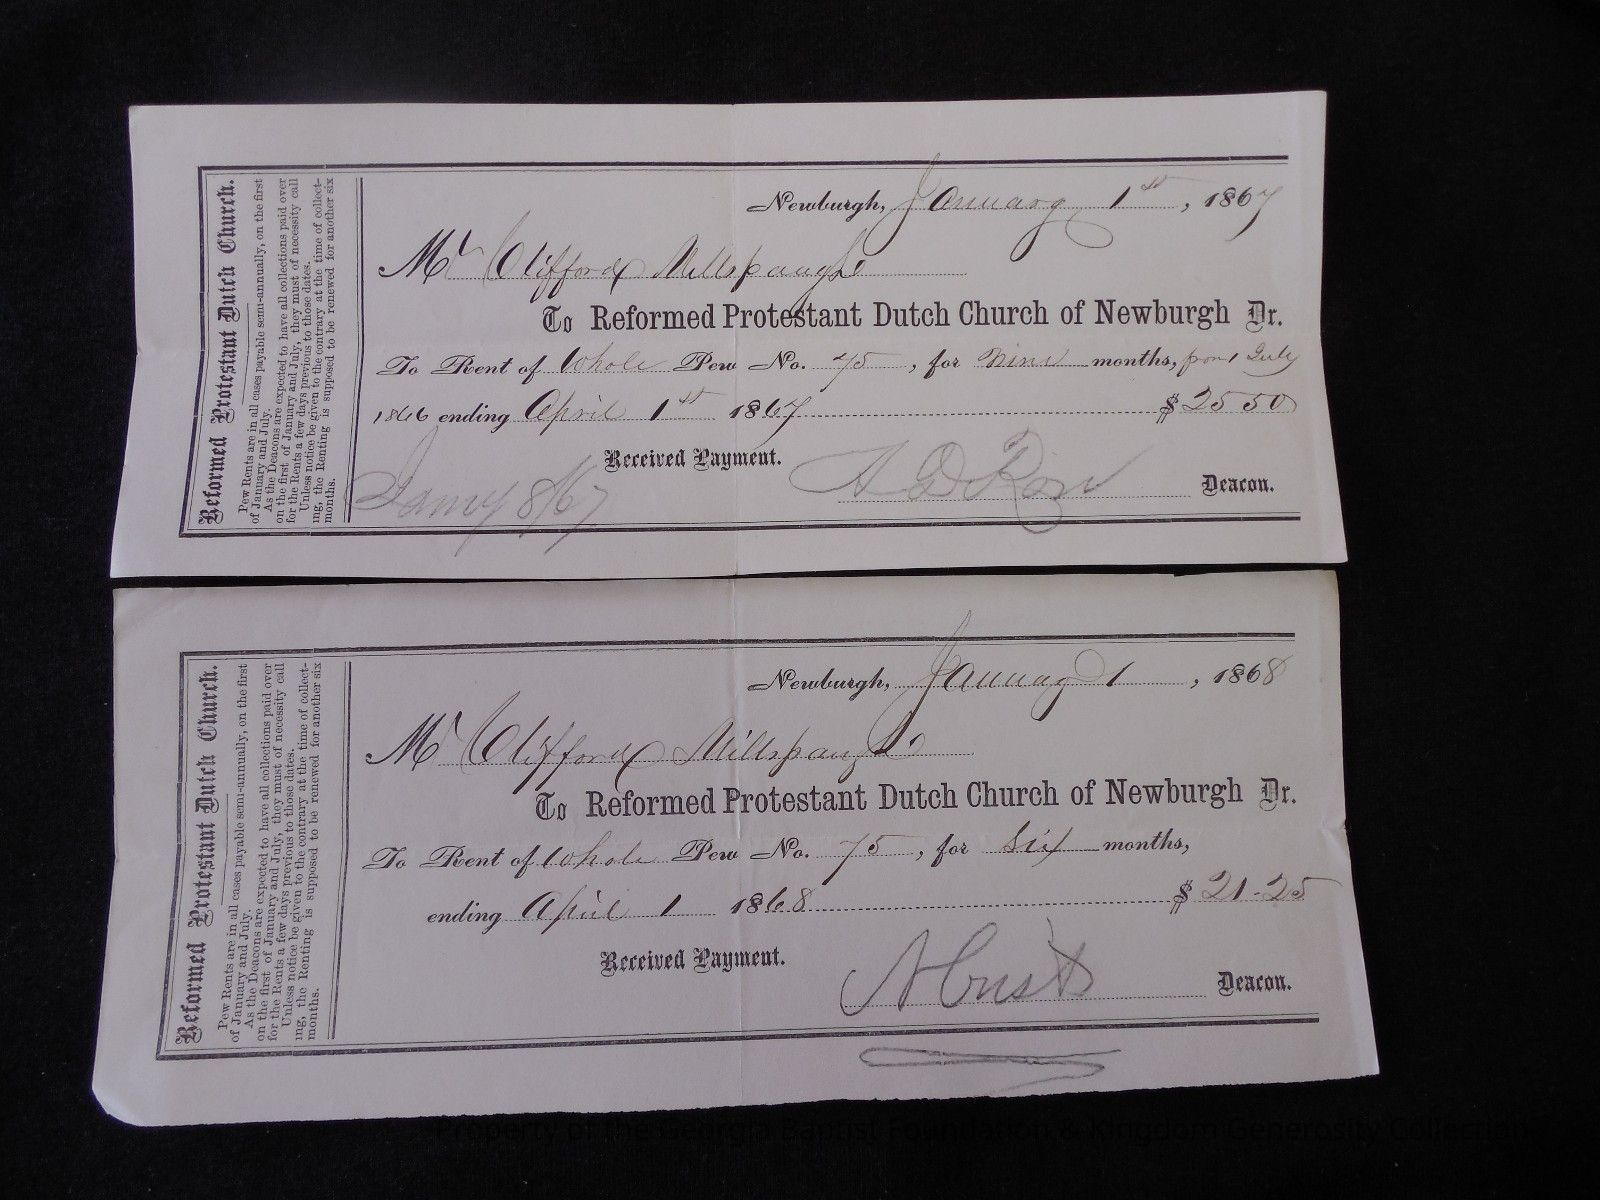 Reformed Protestant Dutch Church.
Pew Rents are in all cases payable semi-annually, on the first
of January and July.
As the Deacons are expected to have all collections paid over
on the first of January and July, they must of necessity call
for the Rents a few days previous to those dates.
Unless notice be given to the contrary at the time of collect-
ing, the Renting is supposed to be renewed for another six
months.
Newburgh, January 1st, 1867
Mr Clifford Millspaugh
To Reformed Protestant Dutch Church of Newburgh Dr.
To Rent of Whole Pew No. 75, for Nine months, from 1 July
1866 ending April 1st 1867 $25 50
Received Payment.
Jany 8/67 Deacon.
Reformed Protestant Dutch Church.
Pew Rents are in all cases payable semi-annually, on the first
of January and July.
As the Deacons are expected to have all collections paid over
on the first of January and July, they must of necessity call
for the Rents a few days previous to those dates.
Unless notice be given to the contrary at the time of collect-
ing, the Renting is supposed to be renewed for another six
months.
Newburgh, January 1, 1868
Mr Clifford Millspaugh
To Reformed Protestant Dutch Church of Newburgh Dr.
To Rent of Whole Pew No. 75, for Six months,
ending April 1 1868 $21-25
Received Payment.
Deacon.
Property of the Georgia Baptist Foundation & Kingdom Generosity Collection